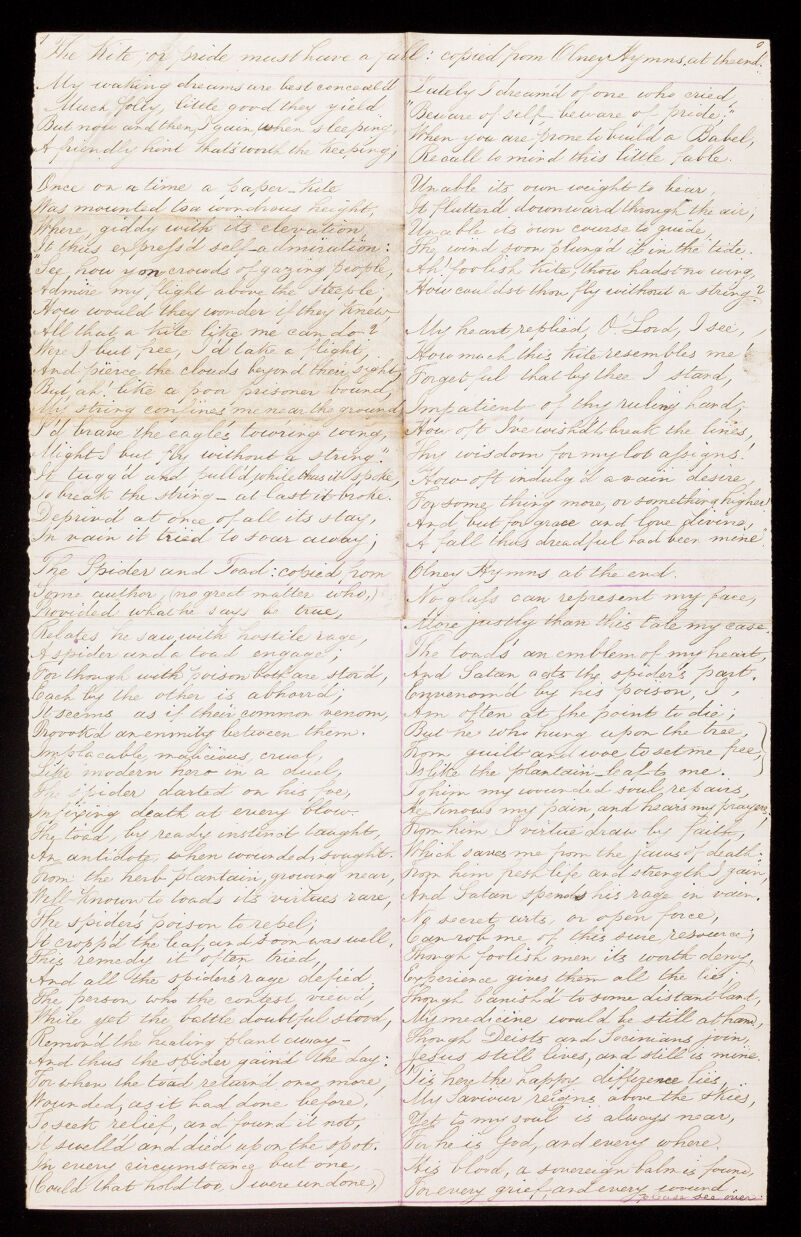 The Kite or pride must have a fall: copied from Olney Hymns, at the end.
My waking dreams are best conceal'd
Much folly, little good they yield
But now and then, I gain, when sleeping,
A friendly hint that's worth the keeping;
Once on a time a paper-kite
Was mounted to a wondrous height,
Where, giddy with its elevation,
It thus express'd self-admiration:
"See how yon crowds of gazing people,
Admire my flight above the steeple;
How would they wonder if they knew
All that a kite like me can do?
Were I but free, I'd take a flight,
And pierce the clouds beyond their sight,
But, ah! like a poor prisoner bound,
My string confines me near the ground;
I'd brave the eagle's towring wing,
Might I but fly without a string."
It tugg'd and pull'd, while thus it spoke,
To break the string - at last it broke.
Depriv'd at once of all its stay,
In vain it tried to soar away;
The Spider and Toad: copied from
Some author, (no great matter who,)
Provided what he says be true,
Relates he saw, with hostile rage,
A spider and a toad engage;
For though with poison both are stor'd,
Each by the other is abhorr'd;
It seems as if their common venom,
Provok'd an enmity between them.
Implacable, malicious, cruel,
Like modern hero in a duel,
The spider darted on his foe,
Infixing death at every blow.
The toad, by ready instinct taught,
An antidote, when wounded, sought.
From the herb plantain, growing near,
Well-known to toads its virtues rare,
The spider's poison to repel;
It cropp'd the leaf, and soon was well,
This remedy it often tried,
And all the spider's rage defied.
The person who the contest view'd,
While yet the battle doubtful stood,
Remov'd the healing plant away -
And thus the spider gain'd the day:
For when the toad return'd once more
Wounded, as it had done before,
To seek relief, and found it not,
It swell'd and died upon the spot.
In every circumstance but one,
(Could that hold too, I were undone,)
Lately I dream'd of one who cried,
"Beware of self - beware of pride;"
When you are prone to build a Babel,
Recall to mind this little fable.
Unable its own weight to bear,
It flutter'd downward through the air;
Unable its own course to guide,
The wind soon plung'd it in the tide.
Ah! foolish kite, thou hadst no wing,
How couldst thou fly without a string?
My heart replied, O Lord, I see,
How much this kite resembles me!
Forgetful that by thee I stand,
Impatient of thy ruling hand;
How oft I've wish'd to break the lines,
Thy wisdom for my lot assigns!
How oft indulg'd a vain desire,
For some thing more, or something higher!
And but for grace and love divine,
A fall thus dreadful had been mine".
Olney Hymns at the end.
No glass can represent my face,
More justly than this tale my case.
The toad's an emblem of my heart,
And Satan acts the spider's part.
Envenom'd by his poison, I,
Am often at the point to die;
But he who hung upon the tree,
From guilt and woe to set me free,
Is like the plantain-leaf to me.
To him my wounded soul repairs,
He knows my pain, and hears my prayers;
From him I virtue draw by faith,
Which saves me from the jaws of death:
From him fresh life and strength I gain,
And Satan spends his rage in vain.
No secret arts or open force,
Can rob me of this sure resource;
Though foolish men its worth deny,
Experience gives them all the lie:
Though banish'd to some distant land,
My medicine would be still at hand,
Though Deists and Socinians join,
Jesus still lives, and still is mine.
'Tis here the happy difference lies,
My Saviour reigns above the skies,
Yet to my soul is always near,
For he is God, and every where.
His blood, a sovereign balm is found,
For every grief, and every wound.
please see over.